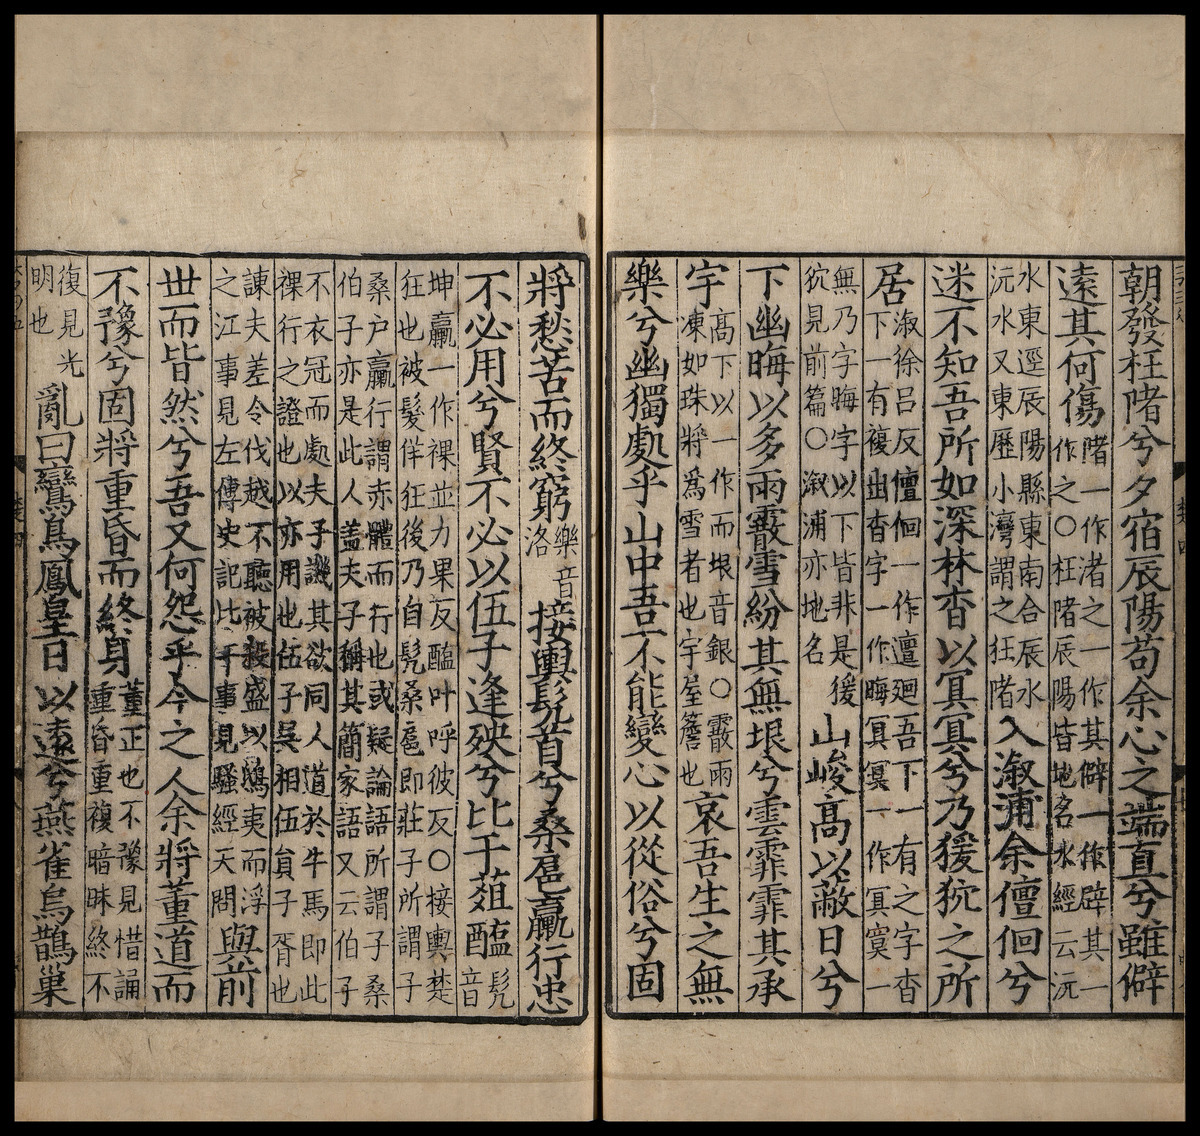 朝發枉陼兮夕宿辰陽苟余心之端直兮雖僻
遠其何傷
陼一作渚之一作其僻一作辟其一
作之○枉陼辰陽皆地名水經云沅
水東逕辰陽縣東南合辰水
沅水又東歷小灣謂之枉陼
入漵浦余儃佪兮
迷不知吾所如深林杳以冥冥兮乃猨狖之所
居
漵徐呂反儃佪一作邅廻吾下一有之字杳
下一有複出杳字一作晦冥㝠一作冥寞一
無乃字晦字以下皆非是猨
狖見前篇○漵浦亦地名
山峻高以蔽日兮
下幽晦以多雨霰雪紛其無垠兮雲霏霏其承
宇
高下以一作而垠音銀○霰雨
凍如珠將爲雪者也宇屋簷也
哀吾生之無
樂兮幽獨處乎山中吾不能變心以從俗兮固
將愁苦而終窮
樂音
洛
接輿髡首兮桑扈臝行忠
不必用兮賢不必以伍子逢殃兮比干葅醢
髡
音
坤臝一作裸並力果反醢叶呼彼反○接輿楚
狂也被髮佯狂後乃自髡桑扈即莊子所謂子
桑户臝行謂赤體而行也或疑論語所謂子桑
伯子亦是此人盖夫子稱其簡家語又云伯子
不衣冠而處夫子譏其欲同人道於牛馬即此
裸行之證也以亦用也伍子吳相伍員子胥也
諫夫差令伐越不聽被殺盛以鴟夷而浮
之江事見左傳史記比干事見騷經天問
與前
世而皆然兮吾又何怨乎今之人余將董道而
不豫兮固將重昏而終身
董正也不豫見惜誦
重昏重複暗昧終不
復見光
明也
亂曰鸞鳥鳳皇日以遠兮燕雀烏鵲巢